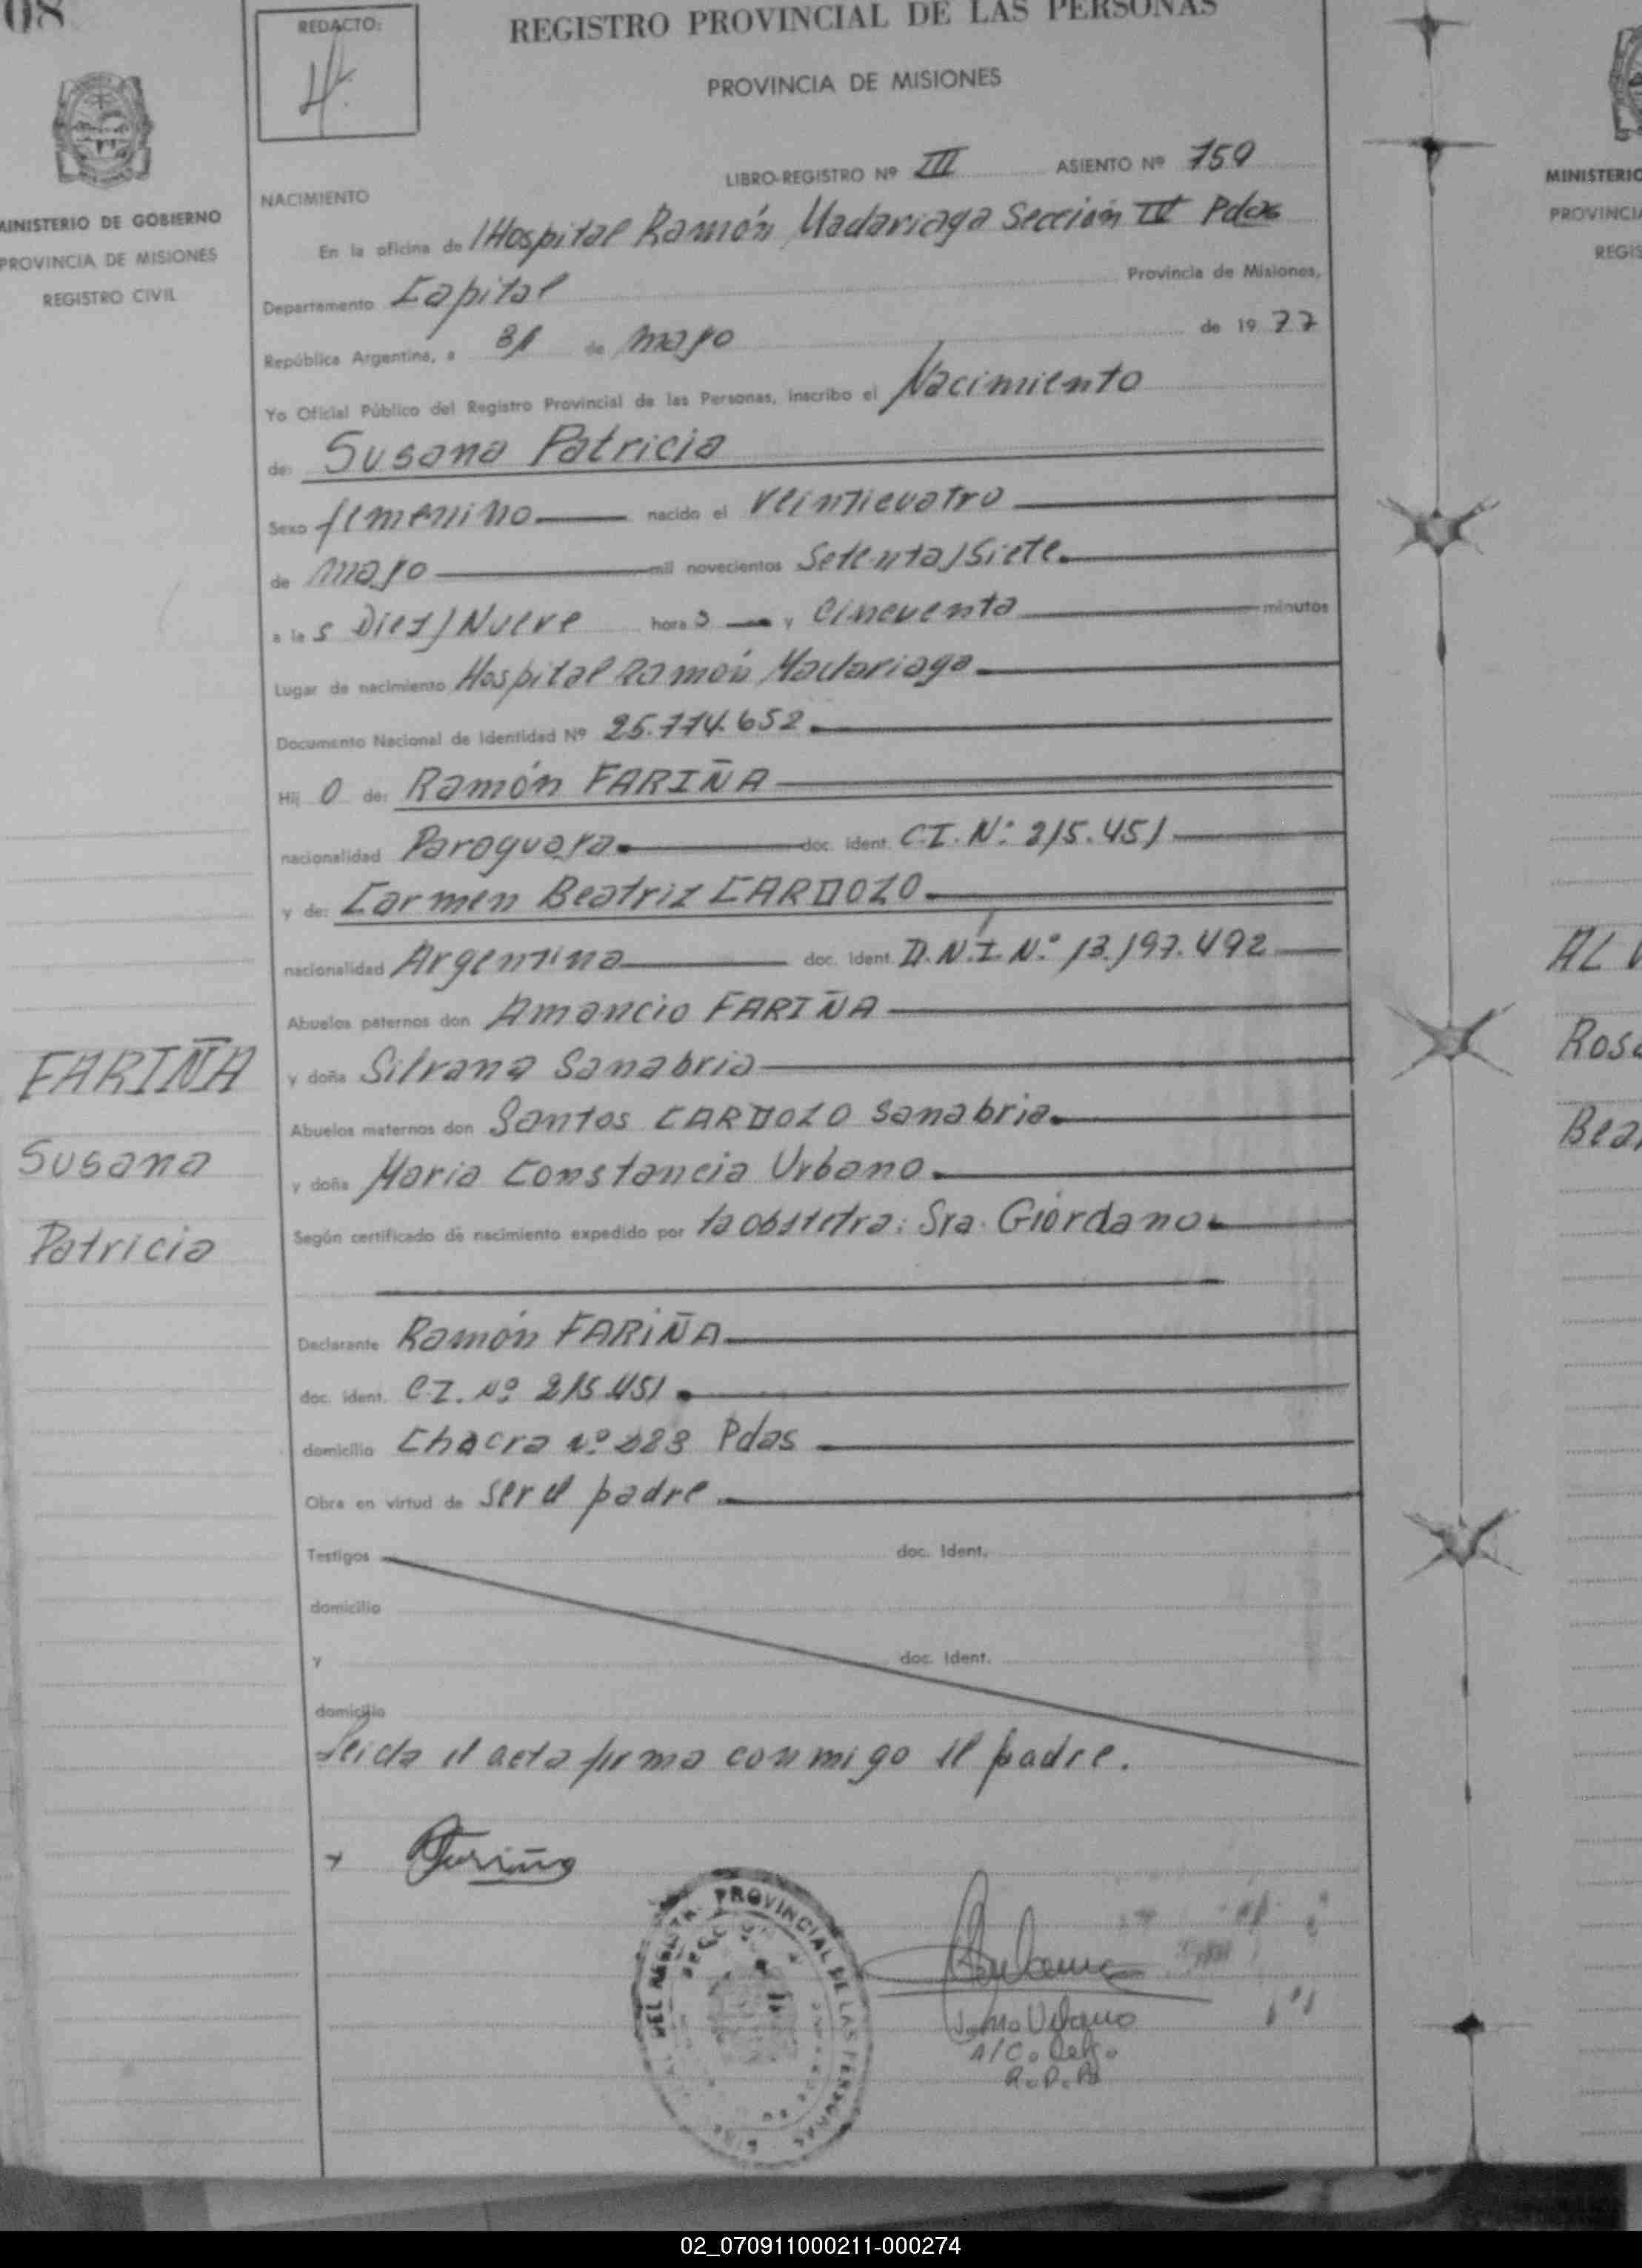 08
REDACTO:
REGISTRO PROVINCIAL DE LAS PERSONAS
PROVINCIA DE MISIONES
LIBRO-REGISTRO Nº III ASIENTO Nº 759
MINISTERIO DE GOBIERNO
PROVINCIA DE MISIONES
REGISTRO CIVIL
NACIMIENTO
En la oficina de Hospital Ramón Madariaga Sección IV Pdas
Departamento Capital Provincia de Misiones,
República Argentina, a 31 de mayo de 1977
Yo Oficial Público del Registro Provincial de las Personas, inscribo el Nacimiento
de: Susana Patricia
Sexo femenino nacido el Veinticuatro
de mayo mil novecientos Setenta y Siete
a las Diez y Nueve horas y Cincuenta minutos
Lugar de nacimiento Hospital Ramón Madariaga
Documento Nacional de Identidad Nº 25.774.652
Hij o de: Ramón FARIÑA
nacionalidad Paraguaya doc. ident. C.I. Nº 215.451
y de: Carmen Beatriz CARDOZO
nacionalidad Argentina doc. ident. D.N.I. Nº 13.197.492
Abuelos paternos don Amancio FARIÑA
y doña Silvana Sanabria
Abuelos maternos don Santos CARDOZO Sanabria
y doña Maria Constancia Urbano
Según certificado de nacimiento expedido por la obstetra: Sra. Giordano
Declarante Ramón FARIÑA
doc. ident. C.I. Nº 215.451
domicilio Chacra Nº Pdas
Obra en virtud de ser el padre
Testigos doc. Ident.
domicilio
y doc. Ident.
domicilio
Leida el acta firma conmigo el padre.
x Fariña
FARIÑA
Susana
Patricia
DEL REGISTRO PROVINCIAL DE LAS PERSONAS
A/C. Deleg.
MINISTERIO
PROVINCIA
REGIS
AL
Rosa
Bea
02_070911000211-000274